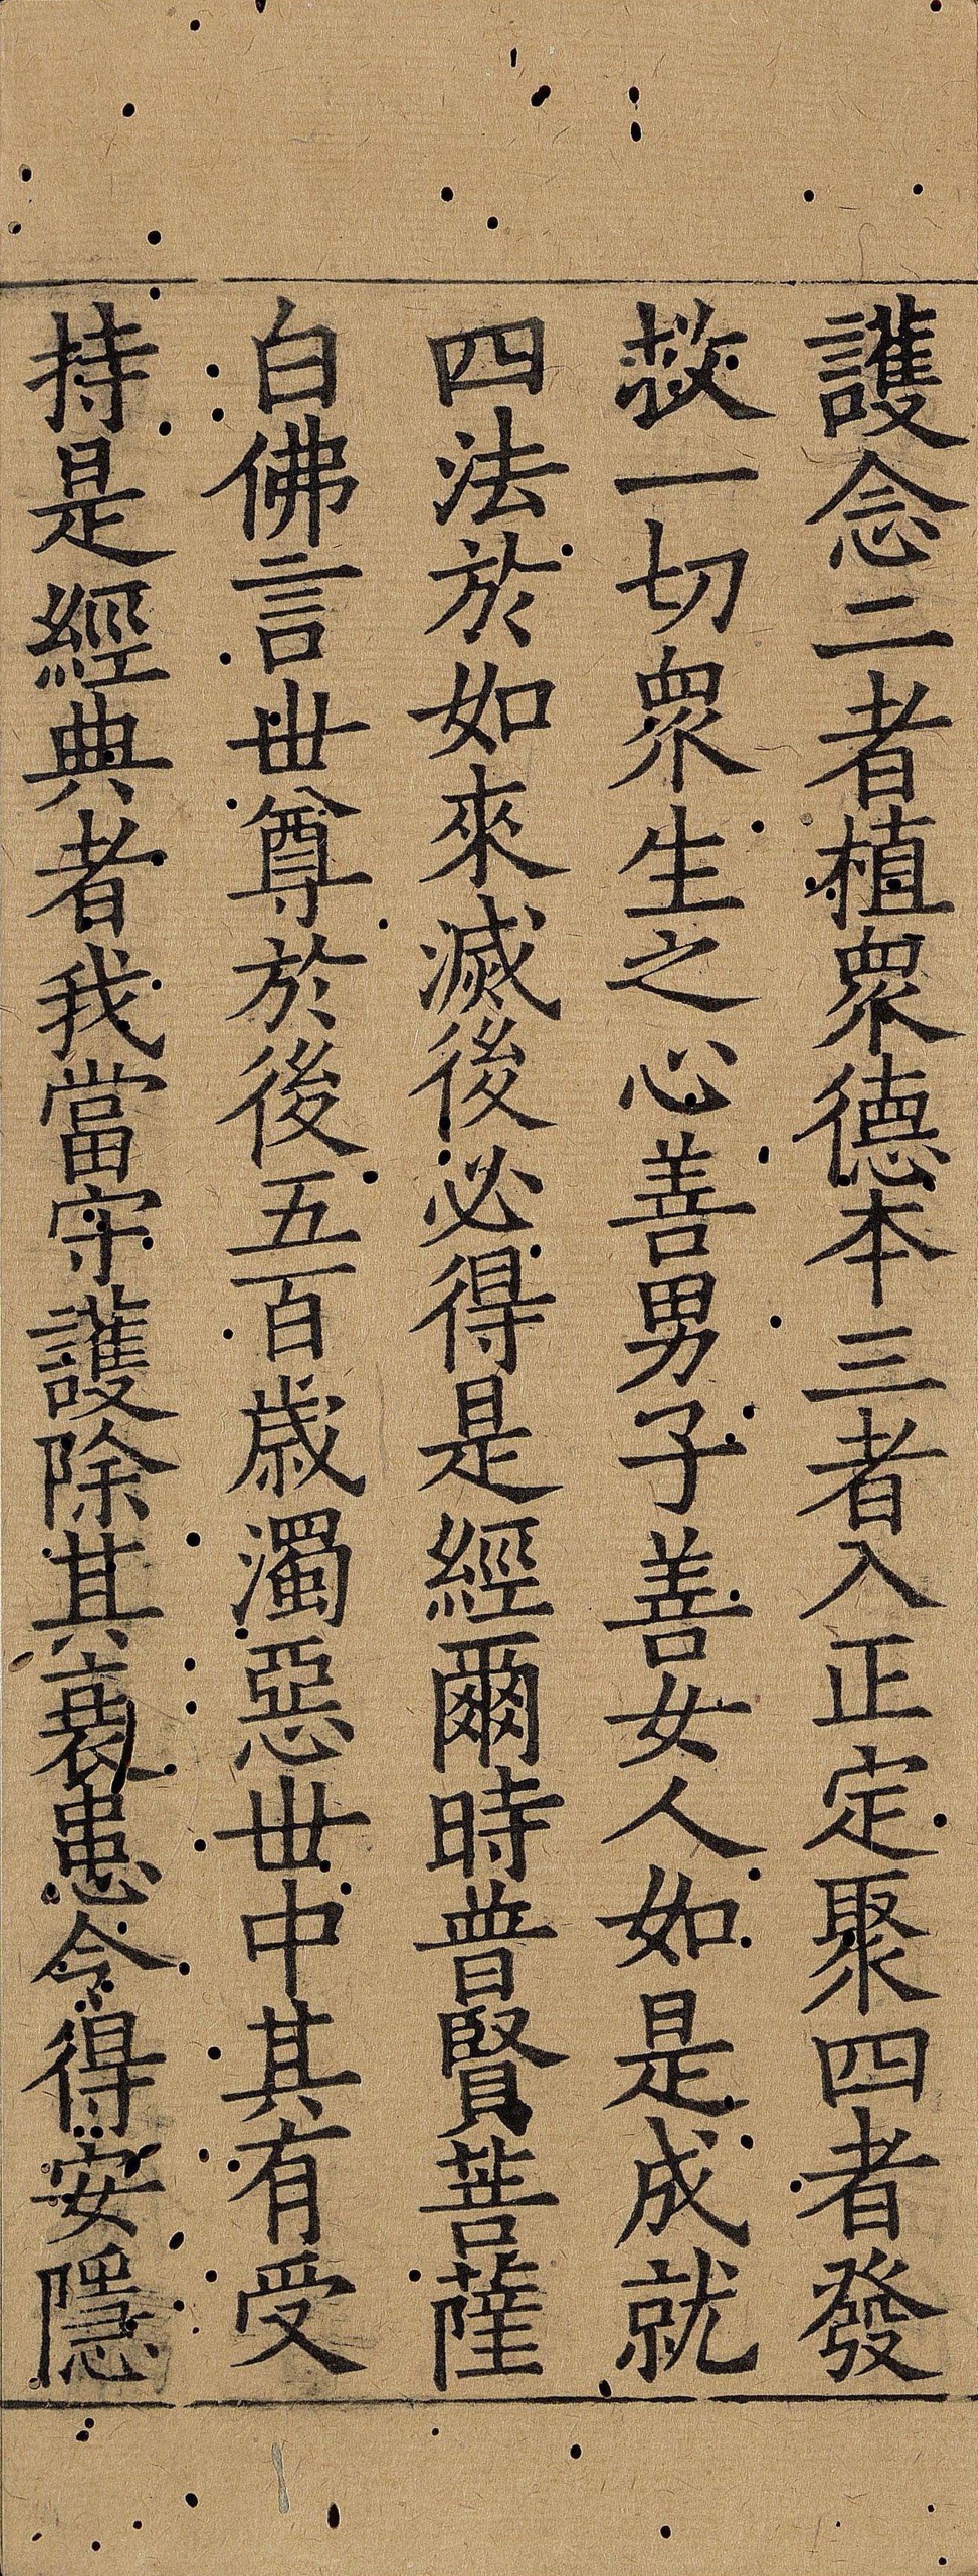 護念二者植衆德本三者入正定聚四者發
救一切衆生之心善男子善女人如是成就
四法於如來滅後必得是經爾時普賢菩薩
白佛言世尊於後五百歲濁惡世中其有受
持是經典者我當守護除其衰患令得安隱